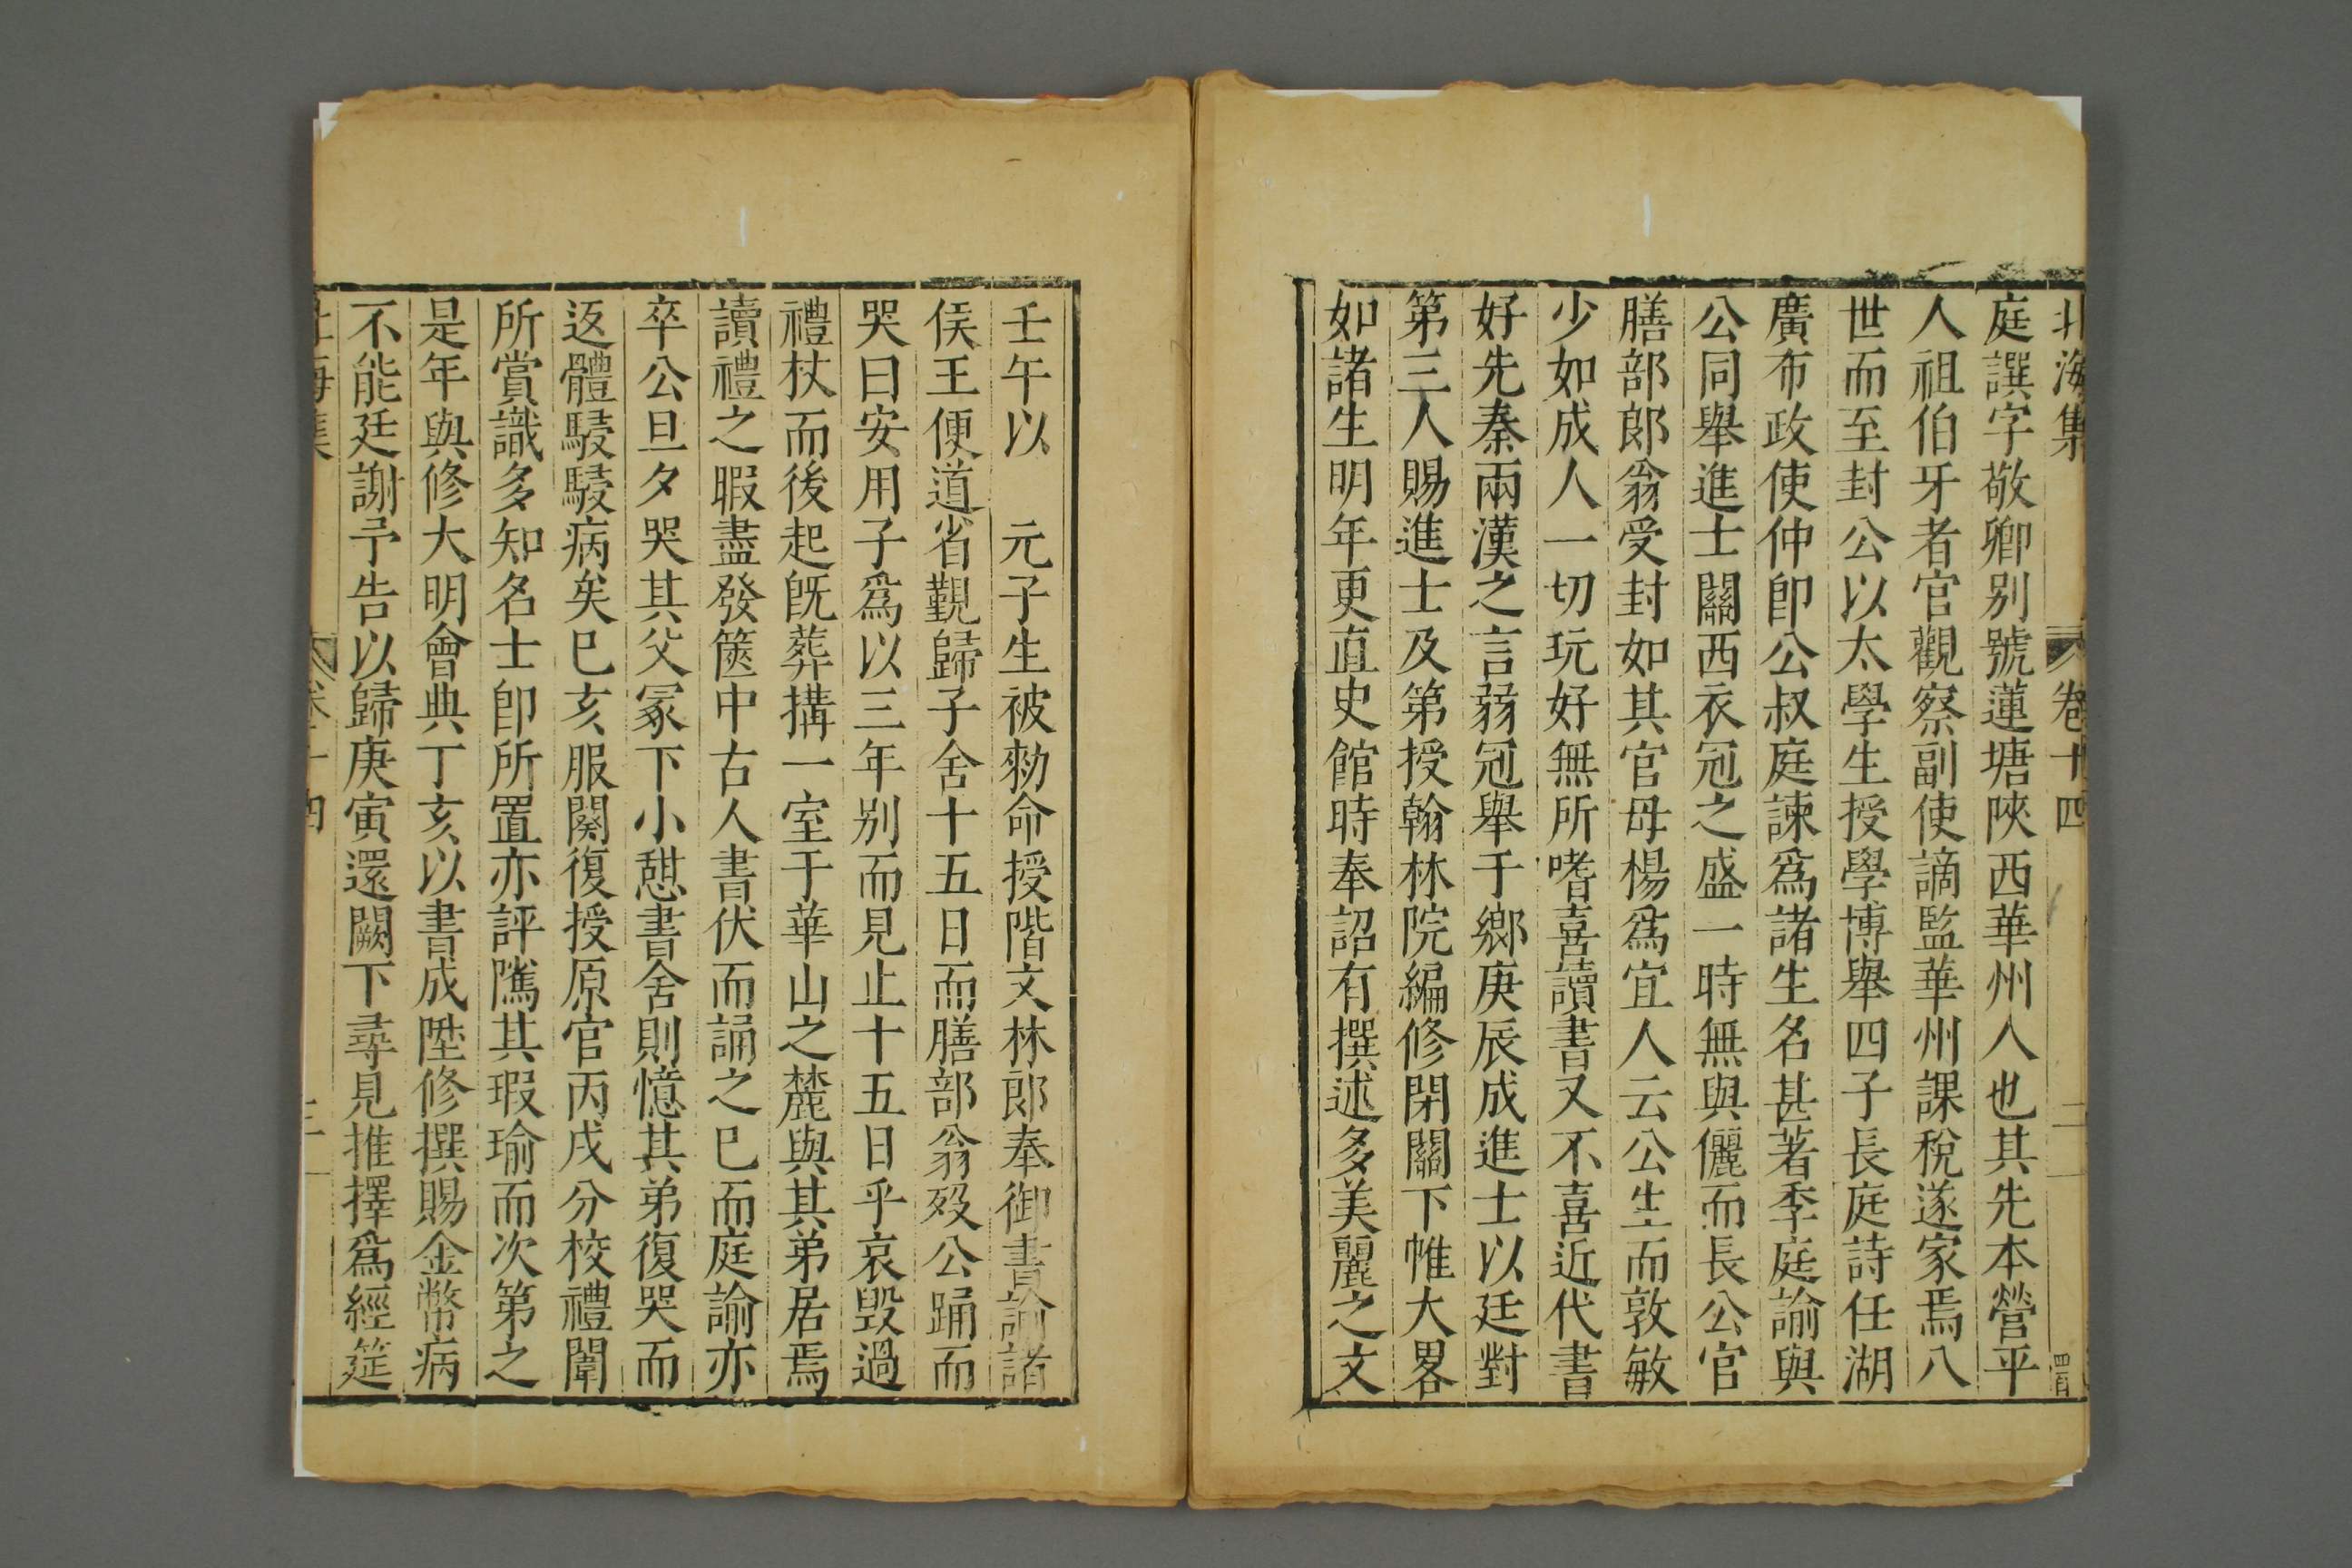 北海集 卷十四 二
庭譔字敬卿别號蓮塘陝西華州人也其先本營平
人祖伯牙者官觀察副使謫監華州課稅遂家焉八
世而至封公以太學生授學博舉四子長庭詩任湖
廣布政使仲卽公叔庭諫爲諸生名甚著季庭諭與
公同舉進士關西衣冠之盛一時無與儷而長公官
膳部郎翁受封如其官母楊爲宜人云公生而敦敏
少如成人一切玩好無所嗜喜讀書又不喜近代書
好先秦兩漢之言蒻冠舉于鄉庚辰成進士以廷對
第三人賜進士及第授翰林院編修閉關下帷大畧
如諸生明年更直史館時奉詔有撰述多美麗之文
壬午以　元子生被勑命授階文林郎奉御書諭諸
侯王便道省覲歸子舍十五日而膳部翁歿公踊而
哭曰安用子爲以三年别而見止十五日乎哀毀過
禮杖而後起旣葬搆一室于華山之麓與其弟居焉
讀禮之暇盡發篋中古人書伏而誦之巳而庭諭亦
卒公旦夕哭其父冢下小憇書舍則憶其弟復哭而
返體駸駸病矣巳亥服闋復授原官丙戌分校禮闈
所賞識多知名士卽所置亦評隲其瑕瑜而次第之
是年與修大明會典丁亥以書成陞修撰賜金幣病
不能廷謝予告以歸庚寅還闕下尋見推擇爲經筵
北海集 卷十四 三